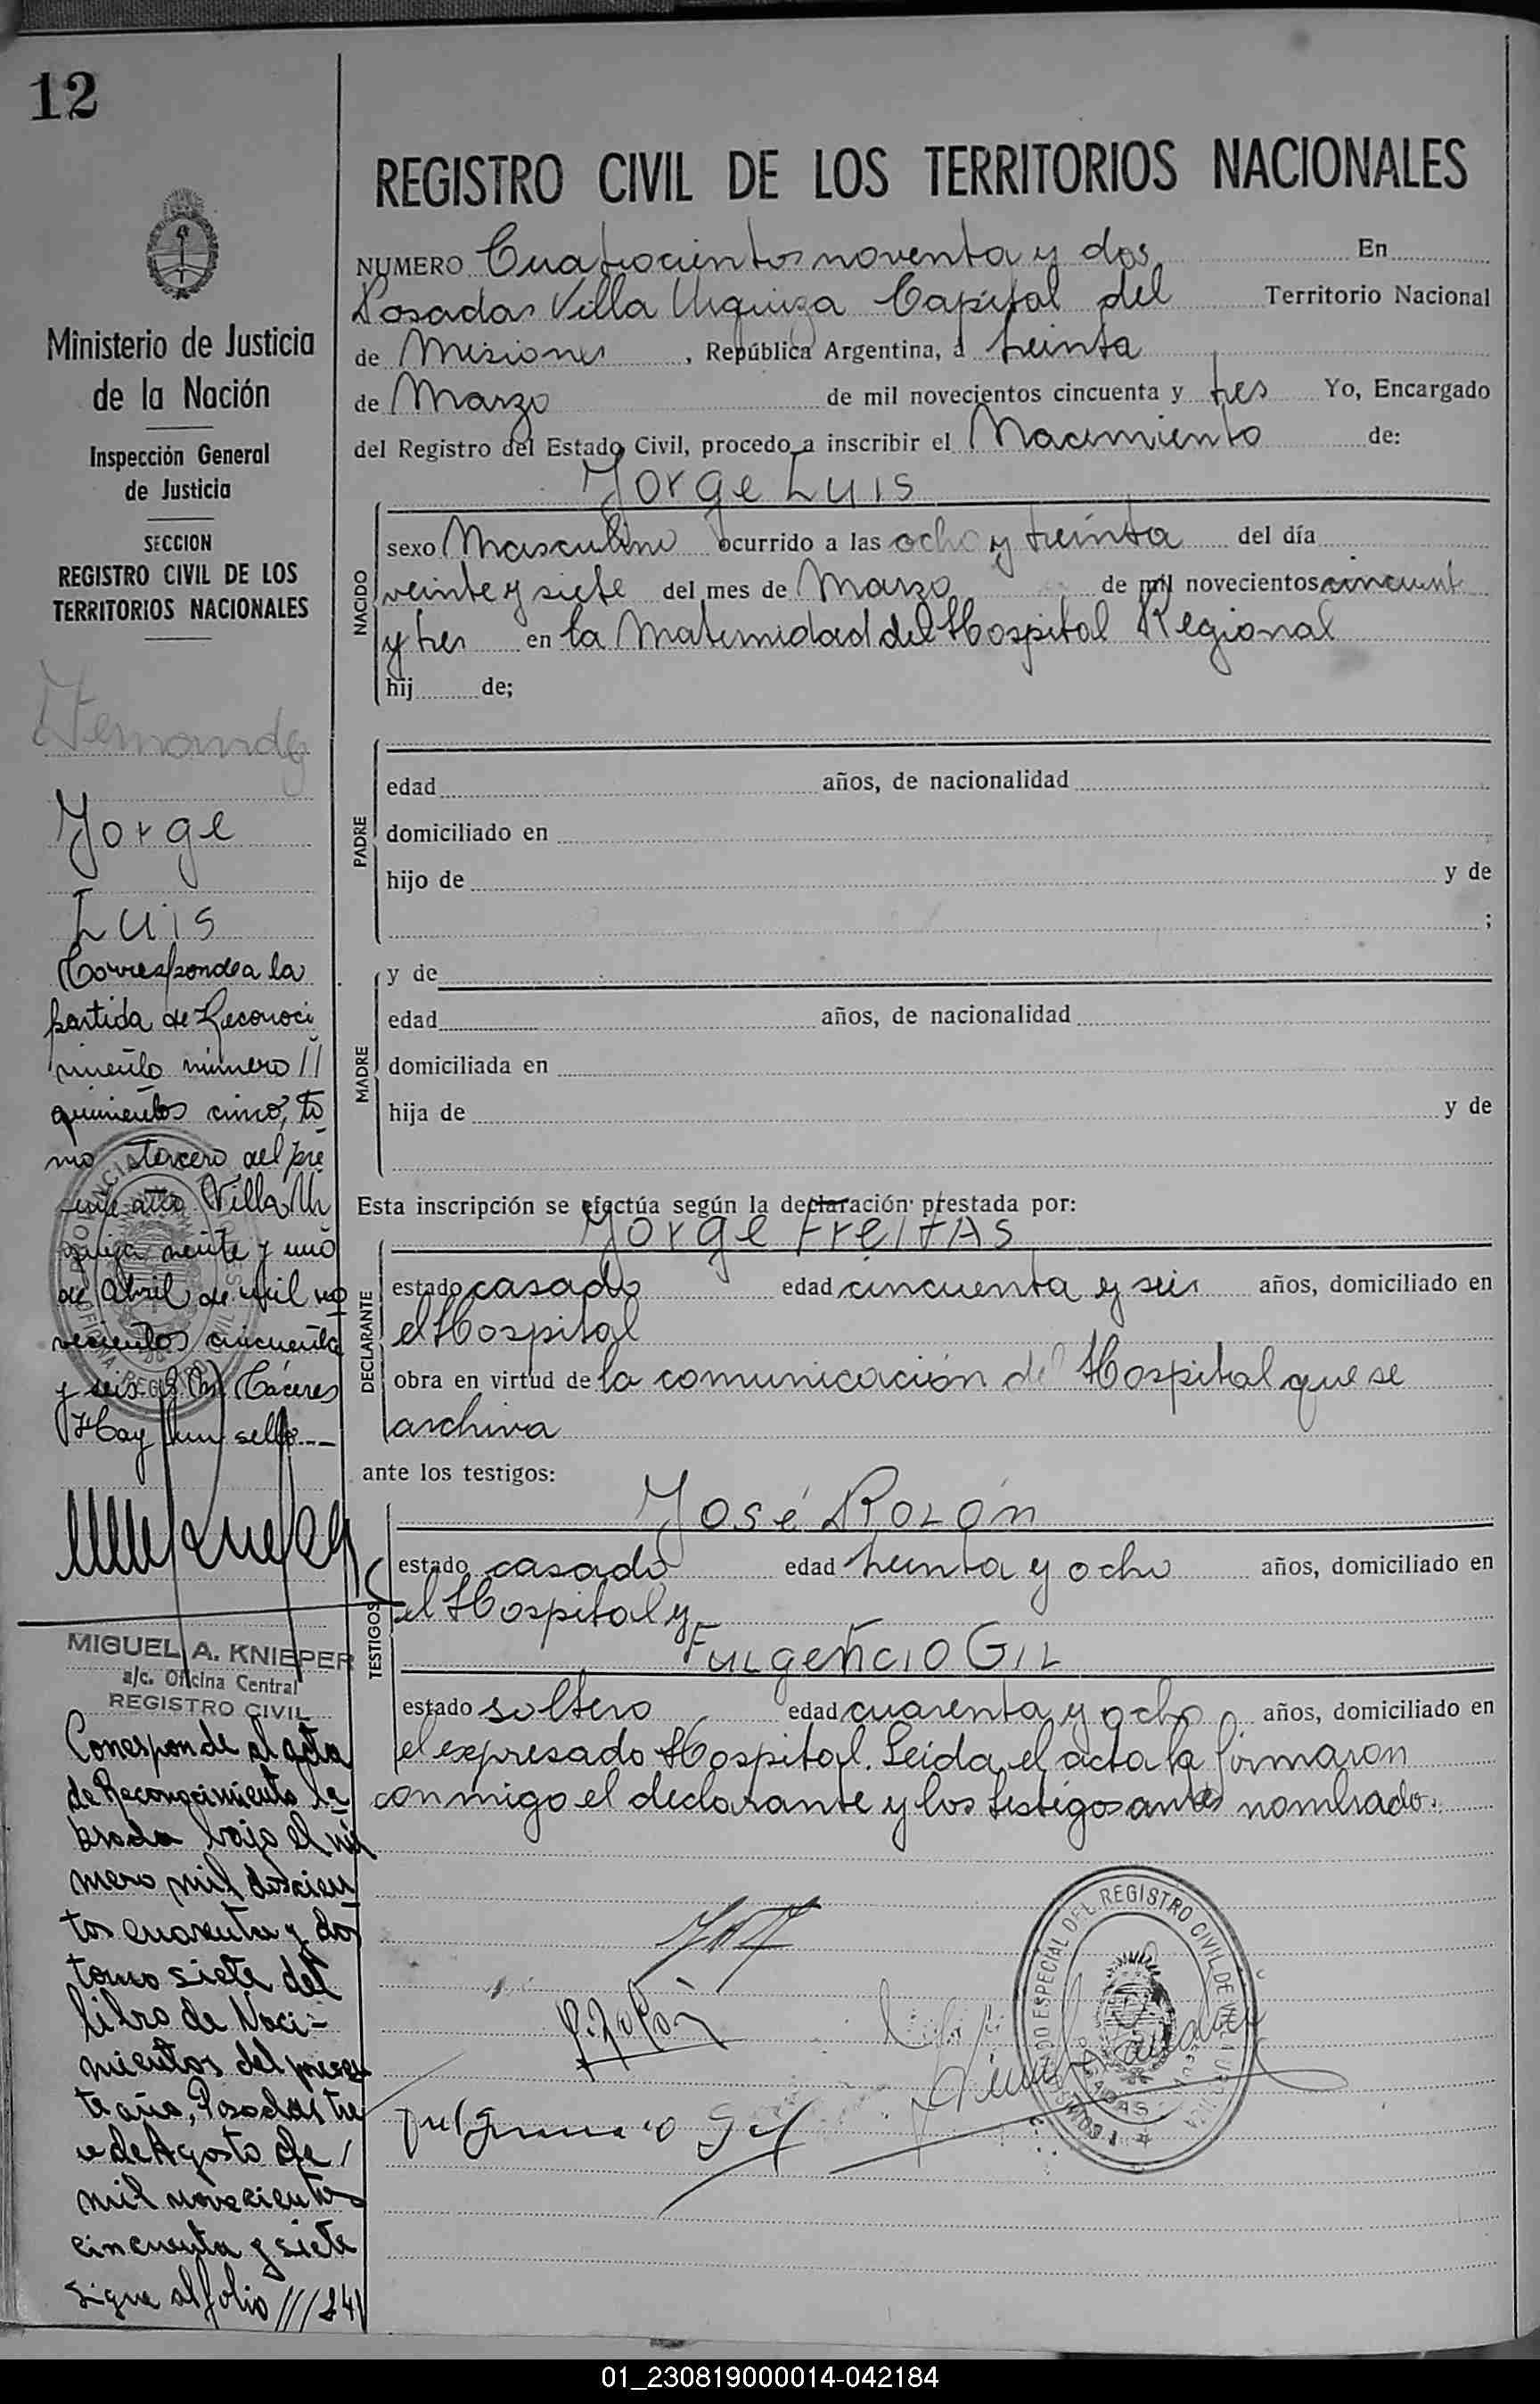 12
Ministerio de Justicia
de la Nación
Inspección General
de Justicia
SECCION
REGISTRO CIVIL DE LOS
TERRITORIOS NACIONALES
Jorge
Luis
Corresponde a la
partida de Reconoci
miento número //
quinientos cinco, to
mo tercero del pre
Villa Ur
quiza veinte y uno
de Abril de mil no
vecientos cincuenta
y seis Cáceres
Hay un sello.--
MIGUEL A. KNIEPER
a/c. Oficina Central
REGISTRO CIVIL
Corresponde al acta
de Reconocimiento la
brada bajo el nú
mero mil doscien
tos cuarenta y dos
tomo siete del
libro de Naci-
mientos del presen
te año, Posadas tre
ce de Agosto de /
mil novecientos
cincuenta y siete
Sigue al folio ///241
REGISTRO CIVIL DE LOS TERRITORIOS NACIONALES
NUMERO Cuatrocientos noventa y dos En
Posadas Villa Urquiza Capital del Territorio Nacional
de Misiones , República Argentina, a treinta
de Marzo de mil novecientos cincuenta y tres Yo, Encargado
del Registro del Estado Civil, procedo a inscribir el Nacimiento de:
Jorge Luis
NACIDO
sexo Masculino ocurrido a las ocho y treinta del día
veinte y siete del mes de Marzo de mil novecientos cincuent
y tres en la Maternidad del Hospital Regional
hij de;
PADRE
edad años, de nacionalidad
domiciliado en
hijo de y de
;
MADRE
y de
edad años, de nacionalidad
domiciliada en
hija de y de
Esta inscripción se efectúa según la declaración prestada por:
Jorge Freitas
DECLARANTE
estado casado edad cincuenta y seis años, domiciliado en
el Hospital
obra en virtud de la comunicación del Hospital que se
archiva
ante los testigos:
José Rolón
TESTIGOS
estado casado edad treinta y ocho años, domiciliado en
el Hospital y
Fulgencio Gil
estado soltero edad cuarenta y ocho años, domiciliado en
el expresado Hospital. Leida el acta la firmaron
conmigo el declarante y los testigos antes nombrado.
01_230819000014-042184